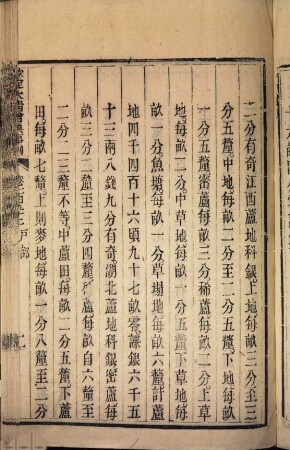 二分有奇江西蘆地科銀上地每畝二分至三
分五釐中地每畝二分至二分五釐下地每畝
一分五釐密蘆每畝三分稀蘆每畝二分上草
地每畝二分中草地每畝一分五釐下草地每
畝一分魚塘每畝一分草塌地每畝六釐計蘆
地四千四百十六頃九十七畝零課銀六千五
十三兩八錢九分有奇湖北蘆地科銀密蘆每
畝三分二釐至三分四釐稀蘆每畝自六釐至
二分二三釐不等中蘆田每畝一分五釐下蘆
田每畝七釐上則麥地每畝一分八釐至二分
欽定大清會典事例 戶部